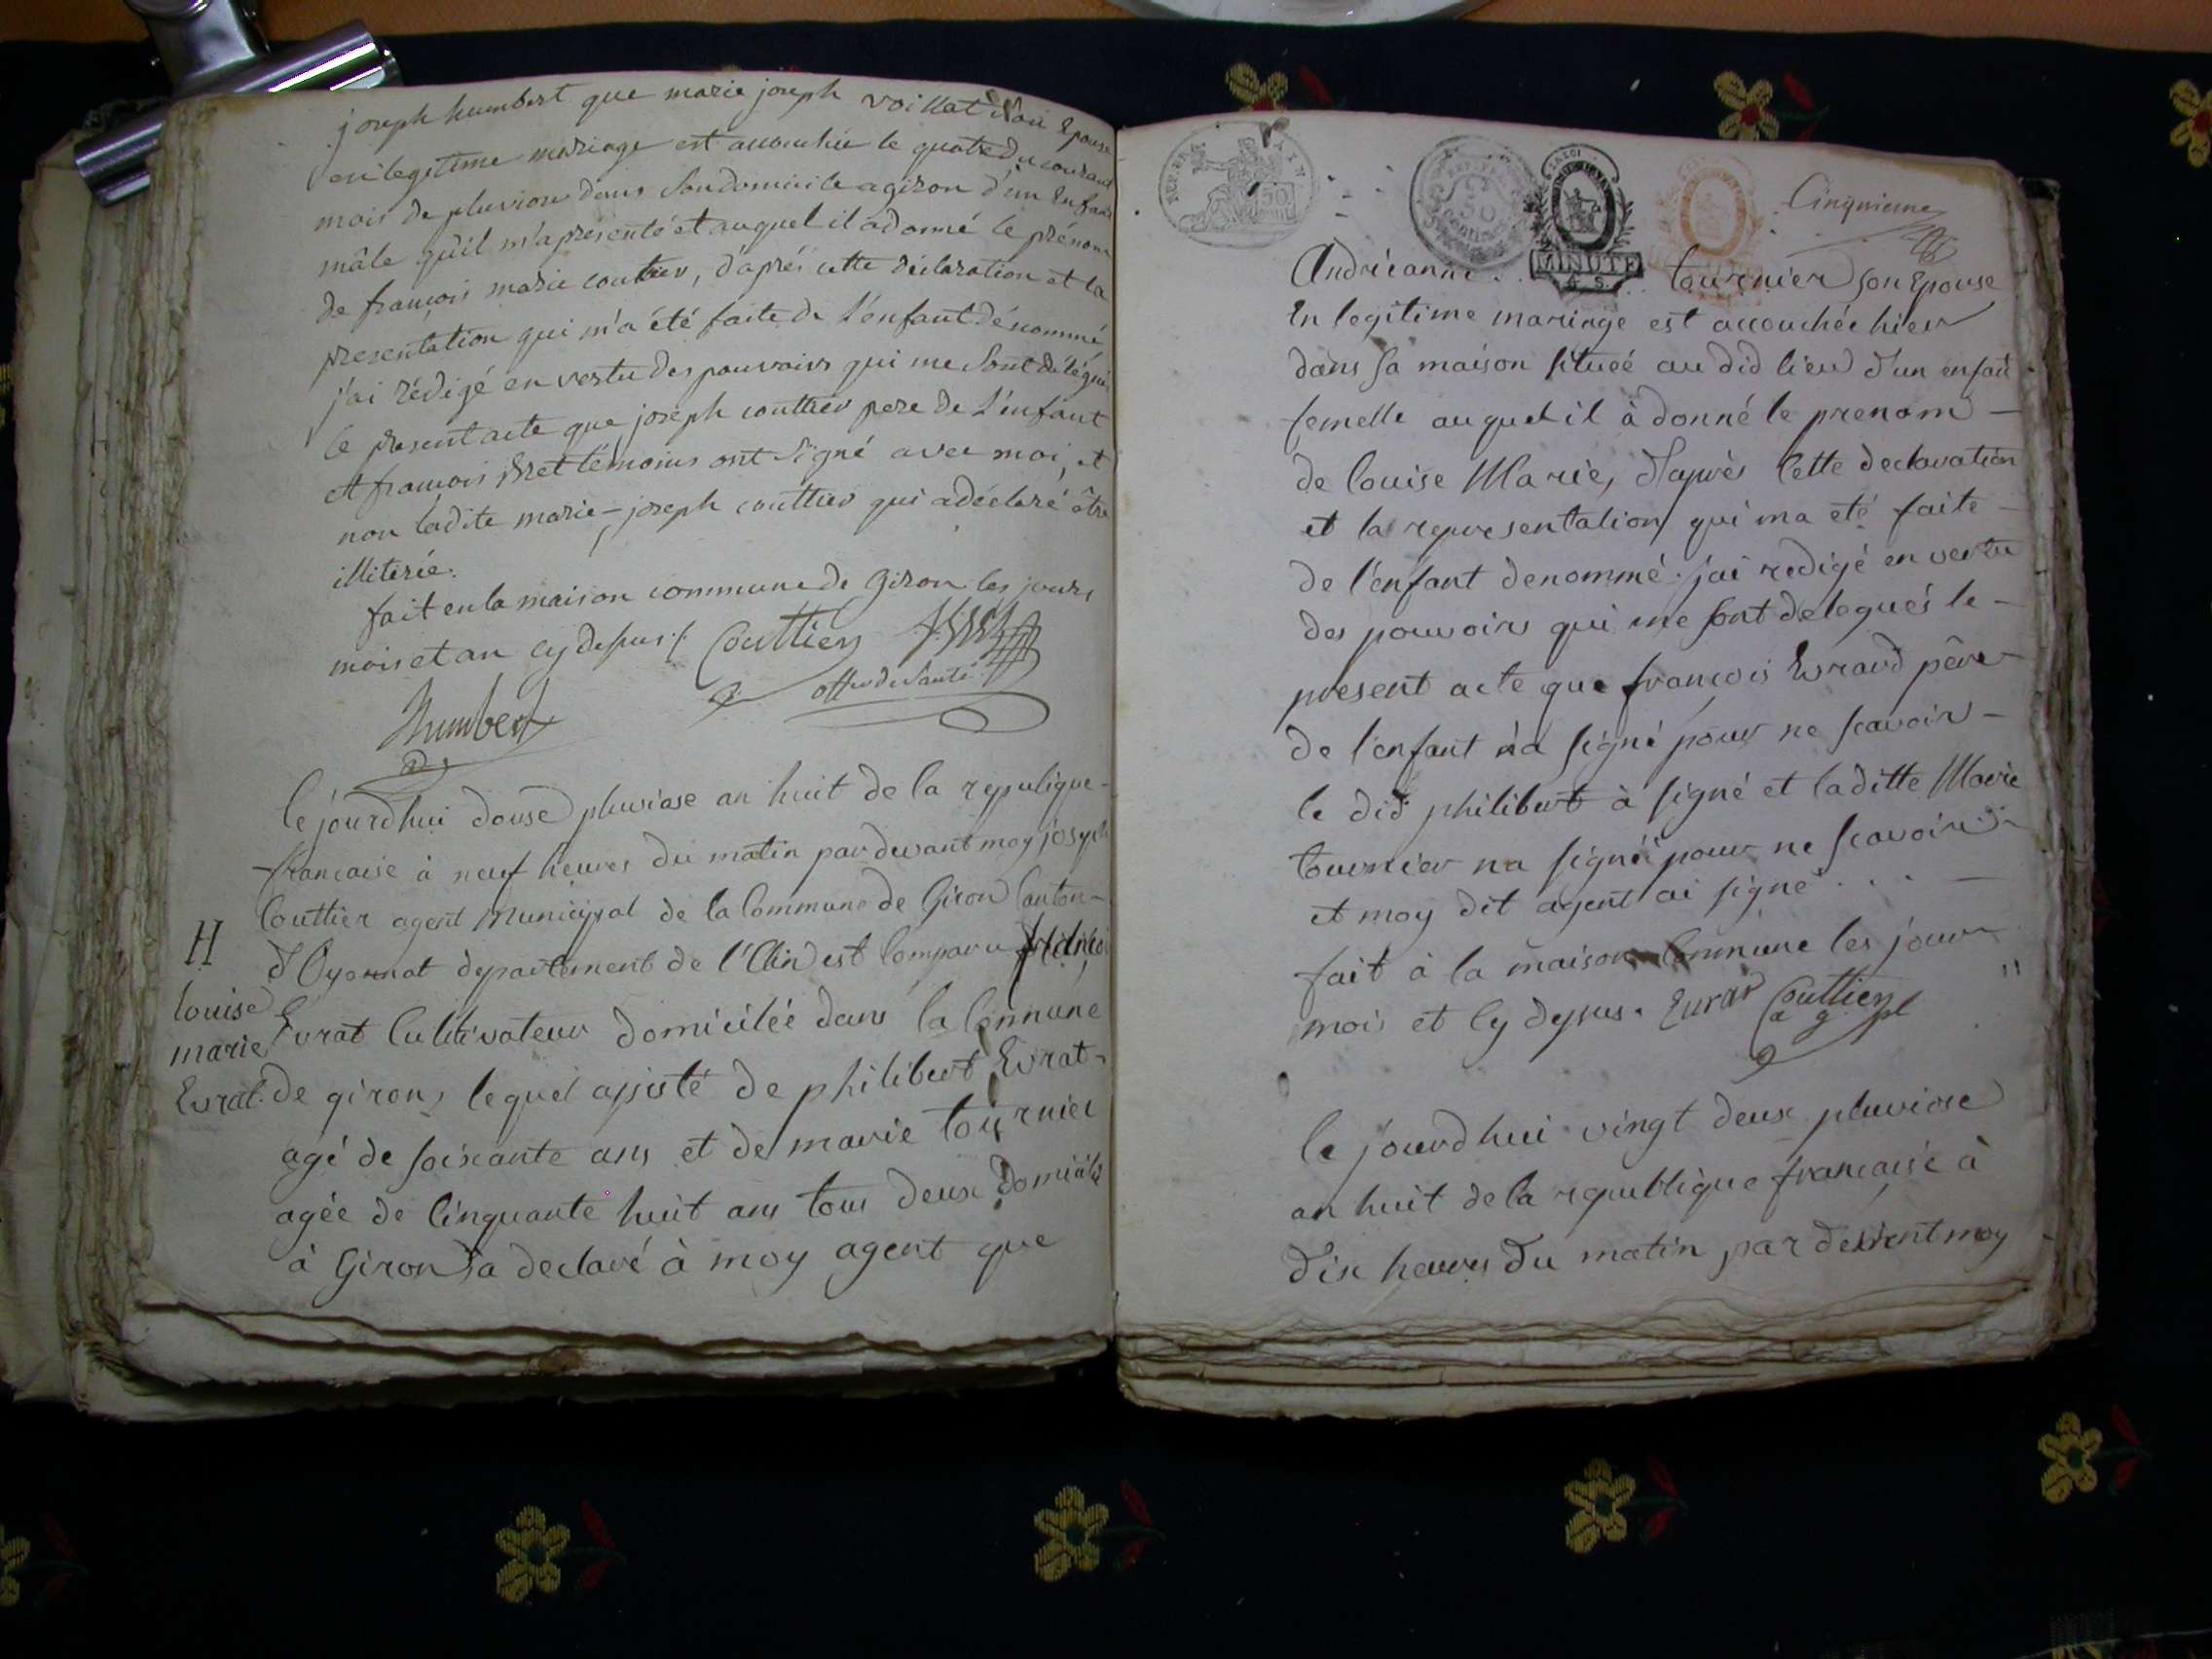 joseph humbert que marie joseph voillat son Epouse
en legitime mariage est accouchée le quatre du courant
mois de pluviose dans son domicile a giron d'un Enfant
mâle qu'il m'a présenté et auquel il a donné le prénom
de francois marie couttier, d'après cette déclaration et la
presentation qui m'a été faite de L'enfant dénommé
j'ai rédigé en vertu des pouvoirs qui me sont délégués
le present acte que joseph couttier pere de L'enfant
et francois témoins ont signé avec moi, et
non ladite marie-joseph couttier qui a déclaré être
illiterée.
fait en la maison commune de Giron les jours,
mois et an cy dessus
Couttier
offer de Santé
Humbert
Cejourdhui douse pluviose an huit de la republique
francaise à neuf heures du matin par devant moy joseph
Couttier agent Municipal de la Commune de Giron Canton
H
d'Oyonnat departement de l'Ain est Comparu
louise
marie
Evrat.
Evrat Cultivateur domicilée dans la Commune
de giron, lequel assisté de philibert Evrat
agé de soixante ans et de marie tournier
agée de Cinquante huit ans tous deux domiciliés
à Giron a declaré à moy agent que
REP. FRA
50
50
centimes
MINUTE
Cinquieme
Andréanne . . . tournier son Epouse
En legitime mariage est accouchée hier
dans sa maison situeé au did lieu d'un enfant
femelle auquel il à donné le prenom —
de louise Marie, d'après Cette declaration
et la representation qui ma eté faite —
de l'enfant denommé. jai redigé en vertu
des pouvoirs qui me sont delegués le —
present acte que francois Evraud père
de l'enfant na signé pour ne scavoir —
le did philibert à signé et laditte Marie
tournier na signé pour ne scavoir
et moy dit agent ai signé . . . —
fait à la maison Commune les jour
mois et Cy dessus. Evrat Couttier
agt
Ce jourdhui vingt deux pluviose
an huit de la republique francaise à
dix heures du matin par devant moy